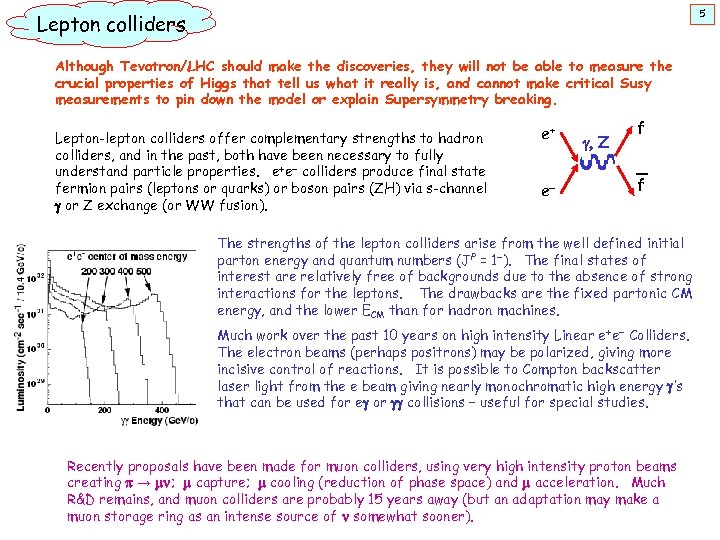 5
Lepton colliders
Although Tevatron/LHC should make the discoveries, they will not be able to measure the
crucial properties of Higgs that tell us what it really is, and cannot make critical Susy
measurements to pin down the model or explain Supersymmetry breaking.
Lepton-lepton colliders offer complementary strengths to hadron
colliders, and in the past, both have been necessary to fully
understand particle properties. e⁺e⁻ colliders produce final state
fermion pairs (leptons or quarks) or boson pairs (ZH) via s-channel
γ or Z exchange (or WW fusion).
e⁺
γ, Z
f
e⁻
f̅
The strengths of the lepton colliders arise from the well defined initial
parton energy and quantum numbers (Jᴾ = 1⁻). The final states of
interest are relatively free of backgrounds due to the absence of strong
interactions for the leptons. The drawbacks are the fixed partonic CM
energy, and the lower E_CM than for hadron machines.
Much work over the past 10 years on high intensity Linear e⁺e⁻ Colliders.
The electron beams (perhaps positrons) may be polarized, giving more
incisive control of reactions. It is possible to Compton backscatter
laser light from the e beam giving nearly monochromatic high energy γ's
that can be used for eγ or γγ collisions – useful for special studies.
e⁺e⁻ center of mass energy
200 300 400 500
10³²
10³¹
10³⁰
10²⁹
Luminosity (cm⁻² sec⁻¹ / 10.4 GeV/c)
0 200 400
γγ Energy (GeV/c)
Recently proposals have been made for muon colliders, using very high intensity proton beams
creating π → μν; μ capture; μ cooling (reduction of phase space) and μ acceleration. Much
R&D remains, and muon colliders are probably 15 years away (but an adaptation may make a
muon storage ring as an intense source of ν somewhat sooner).